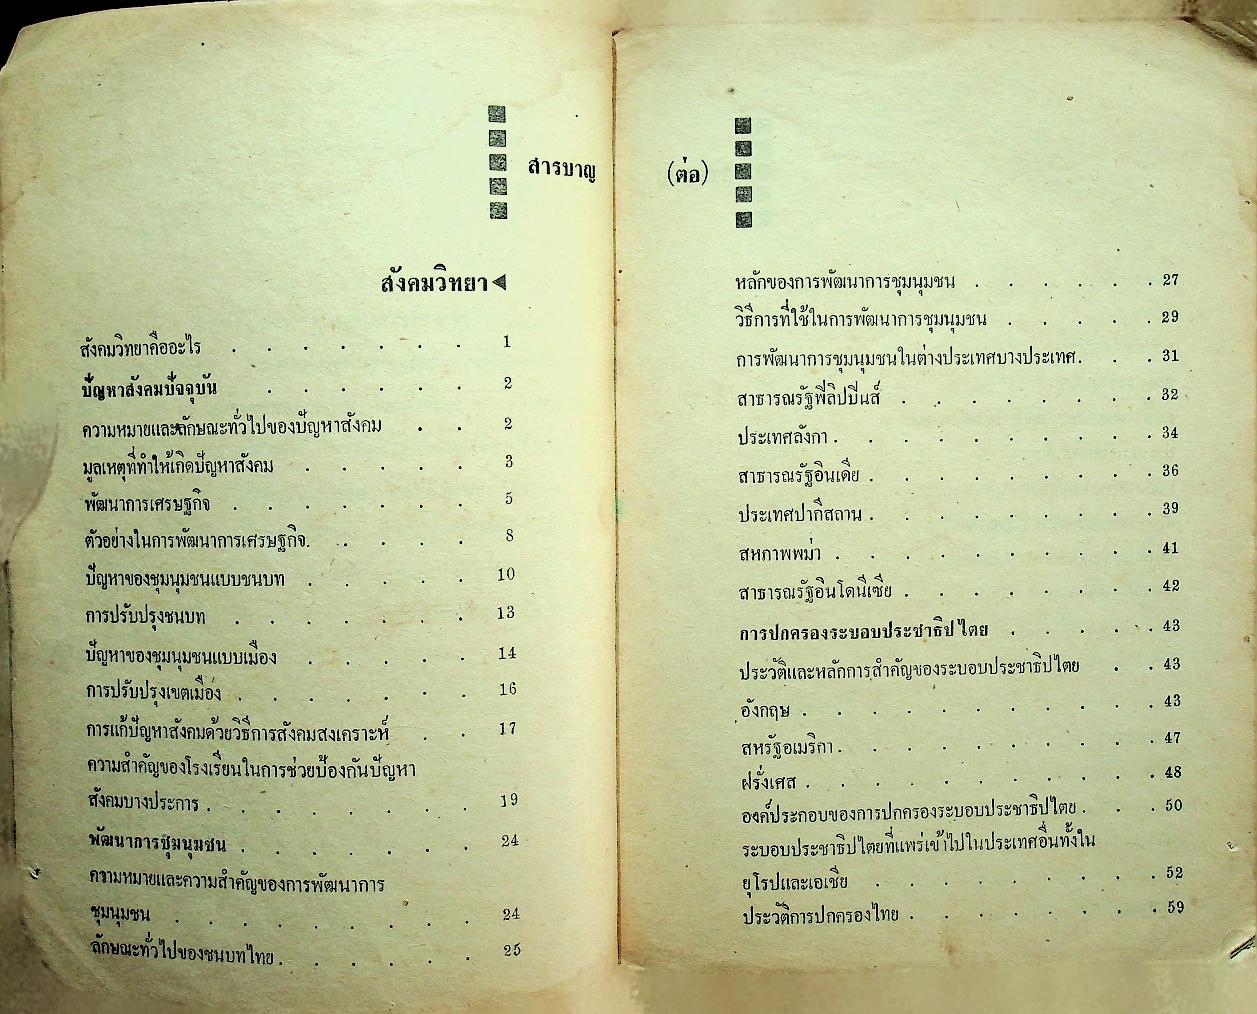 สารบาญ (ต่อ)
สังคมวิทยา
สังคมวิทยาคืออะไร . . . . . . . 1
ปัญหาสังคมปัจจุบัน . . . . . . 2
ความหมายและลักษณะทั่วไปของปัญหาสังคม . . 2
มูลเหตุที่ทำให้เกิดปัญหาสังคม . . . . . 3
พัฒนาการเศรษฐกิจ . . . . . . . 5
ตัวอย่างในการพัฒนาการเศรษฐกิจ. . . . . 8
ปัญหาของชุมนุมชนแบบชนบท . . . . . 10
การปรับปรุงชนบท . . . . . . . 13
ปัญหาของชุมนุมชนแบบเมือง . . . . . 14
การปรับปรุงเขตเมือง . . . . . . . 16
การแก้ปัญหาสังคมด้วยวิธีการสังคมสงเคราะห์ . . 17
ความสำคัญของโรงเรียนในการช่วยป้องกันปัญหา
สังคมบางประการ . . . . . . . . 19
พัฒนาการชุมนุมชน . . . . . . . 24
ความหมายและความสำคัญของการพัฒนาการ
ชุมนุมชน . . . . . . . . 24
ลักษณะทั่วไปของชนบทไทย . . . . . . 25
หลักของการพัฒนาการชุมนุมชน . . . . . . 27
วิธีการที่ใช้ในการพัฒนาการชุมนุมชน . . . . . 29
การพัฒนาการชุมนุมชนในต่างประเทศบางประเทศ. . . 31
สาธารณรัฐฟิลิปปินส์ . . . . . . . . 32
ประเทศลังกา . . . . . . . . . 34
สาธารณรัฐอินเดีย . . . . . . . . 36
ประเทศปากีสถาน . . . . . . . . 39
สหภาพพม่า . . . . . . . . . 41
สาธารณรัฐอินโดนีเซีย . . . . . . . 42
การปกครองระบอบประชาธิปไตย . . . . . 43
ประวัติและหลักการสำคัญของระบอบประชาธิปไตย . . 43
อังกฤษ . . . . . . . . . . 43
สหรัฐอเมริกา . . . . . . . . . 47
ฝรั่งเศส . . . . . . . . . 48
องค์ประกอบของการปกครองระบอบประชาธิปไตย . . . 50
ระบอบประชาธิปไตยที่แพร่เข้าไปในประเทศอื่นทั้งใน
ยุโรปและเอเชีย . . . . . . . 52
ประวัติการปกครองไทย . . . . . . . 59